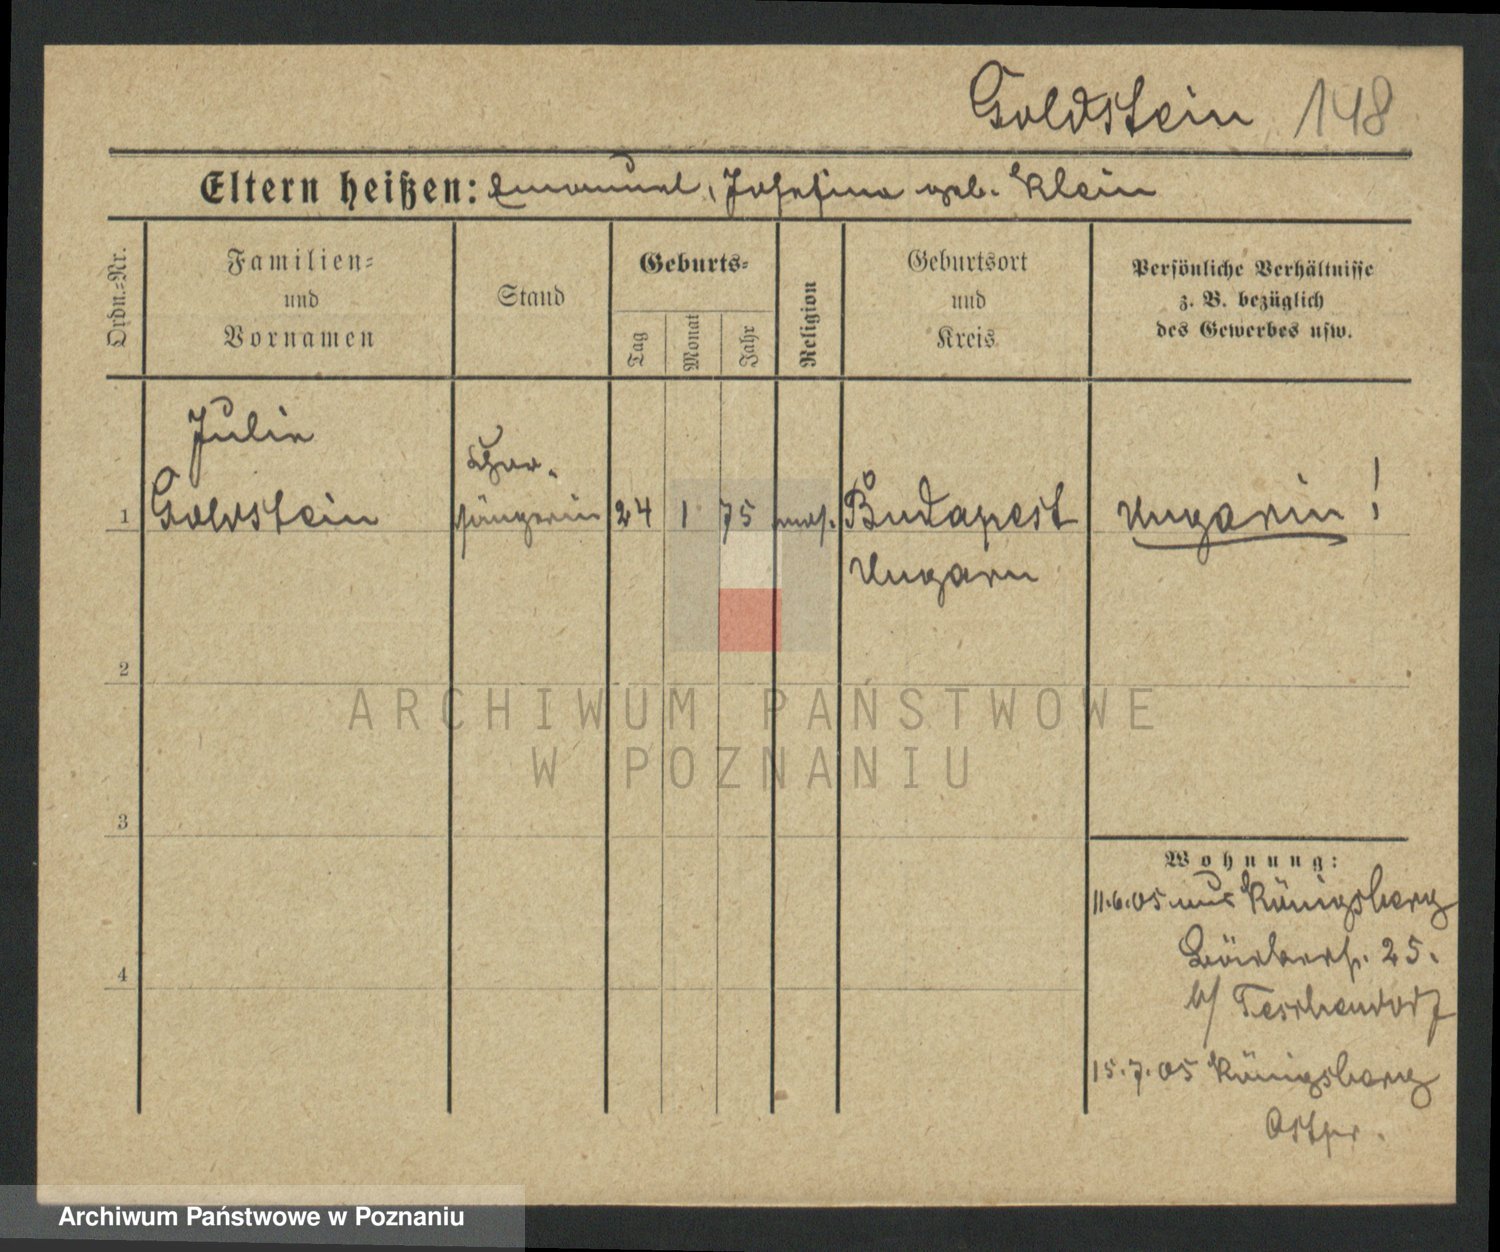 Goldstein 148
Eltern heißen: Emanuel, Josefina geb. Klein
Ordn.-Nr.
Familien-
und
Vornamen
Stand
Geburts-
Tag
Monat
Jahr
Religion
Geburtsort
und
Kreis
Persönliche Verhältnisse
z. B. bezüglich
des Gewerbes usw.
Julie
Chor-
1 Goldstein sängerin 24 1 75 mos. Budapest Ungarin!
Ungarn
2
ARCHIWUM PAŃSTWOWE
W POZNANIU
3
Wohnung:
11.6.05 aus Königsberg
25.
4
b/ Teschendorf
15.7.05 Königsberg
Ostpr.
Archiwum Państwowe w Poznaniu